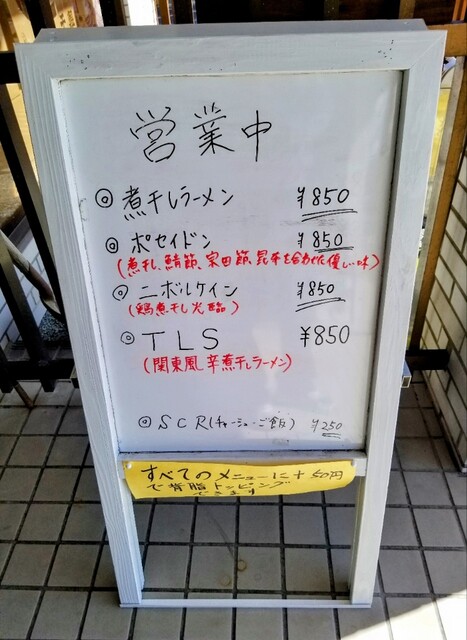 営業中
◎煮干しラーメン ¥850
◎ポセイドン ¥850
(煮干し、鯖節、宗田節、昆布を合わせた優しい味)
◎ニボルケイン ¥850
(鶏煮干し光臨)
◎TLS ¥850
(関東風辛煮干しラーメン)
◎SCR(チャーシューご飯) ¥250
すべてのメニューに+50円
で背脂トッピング
できます